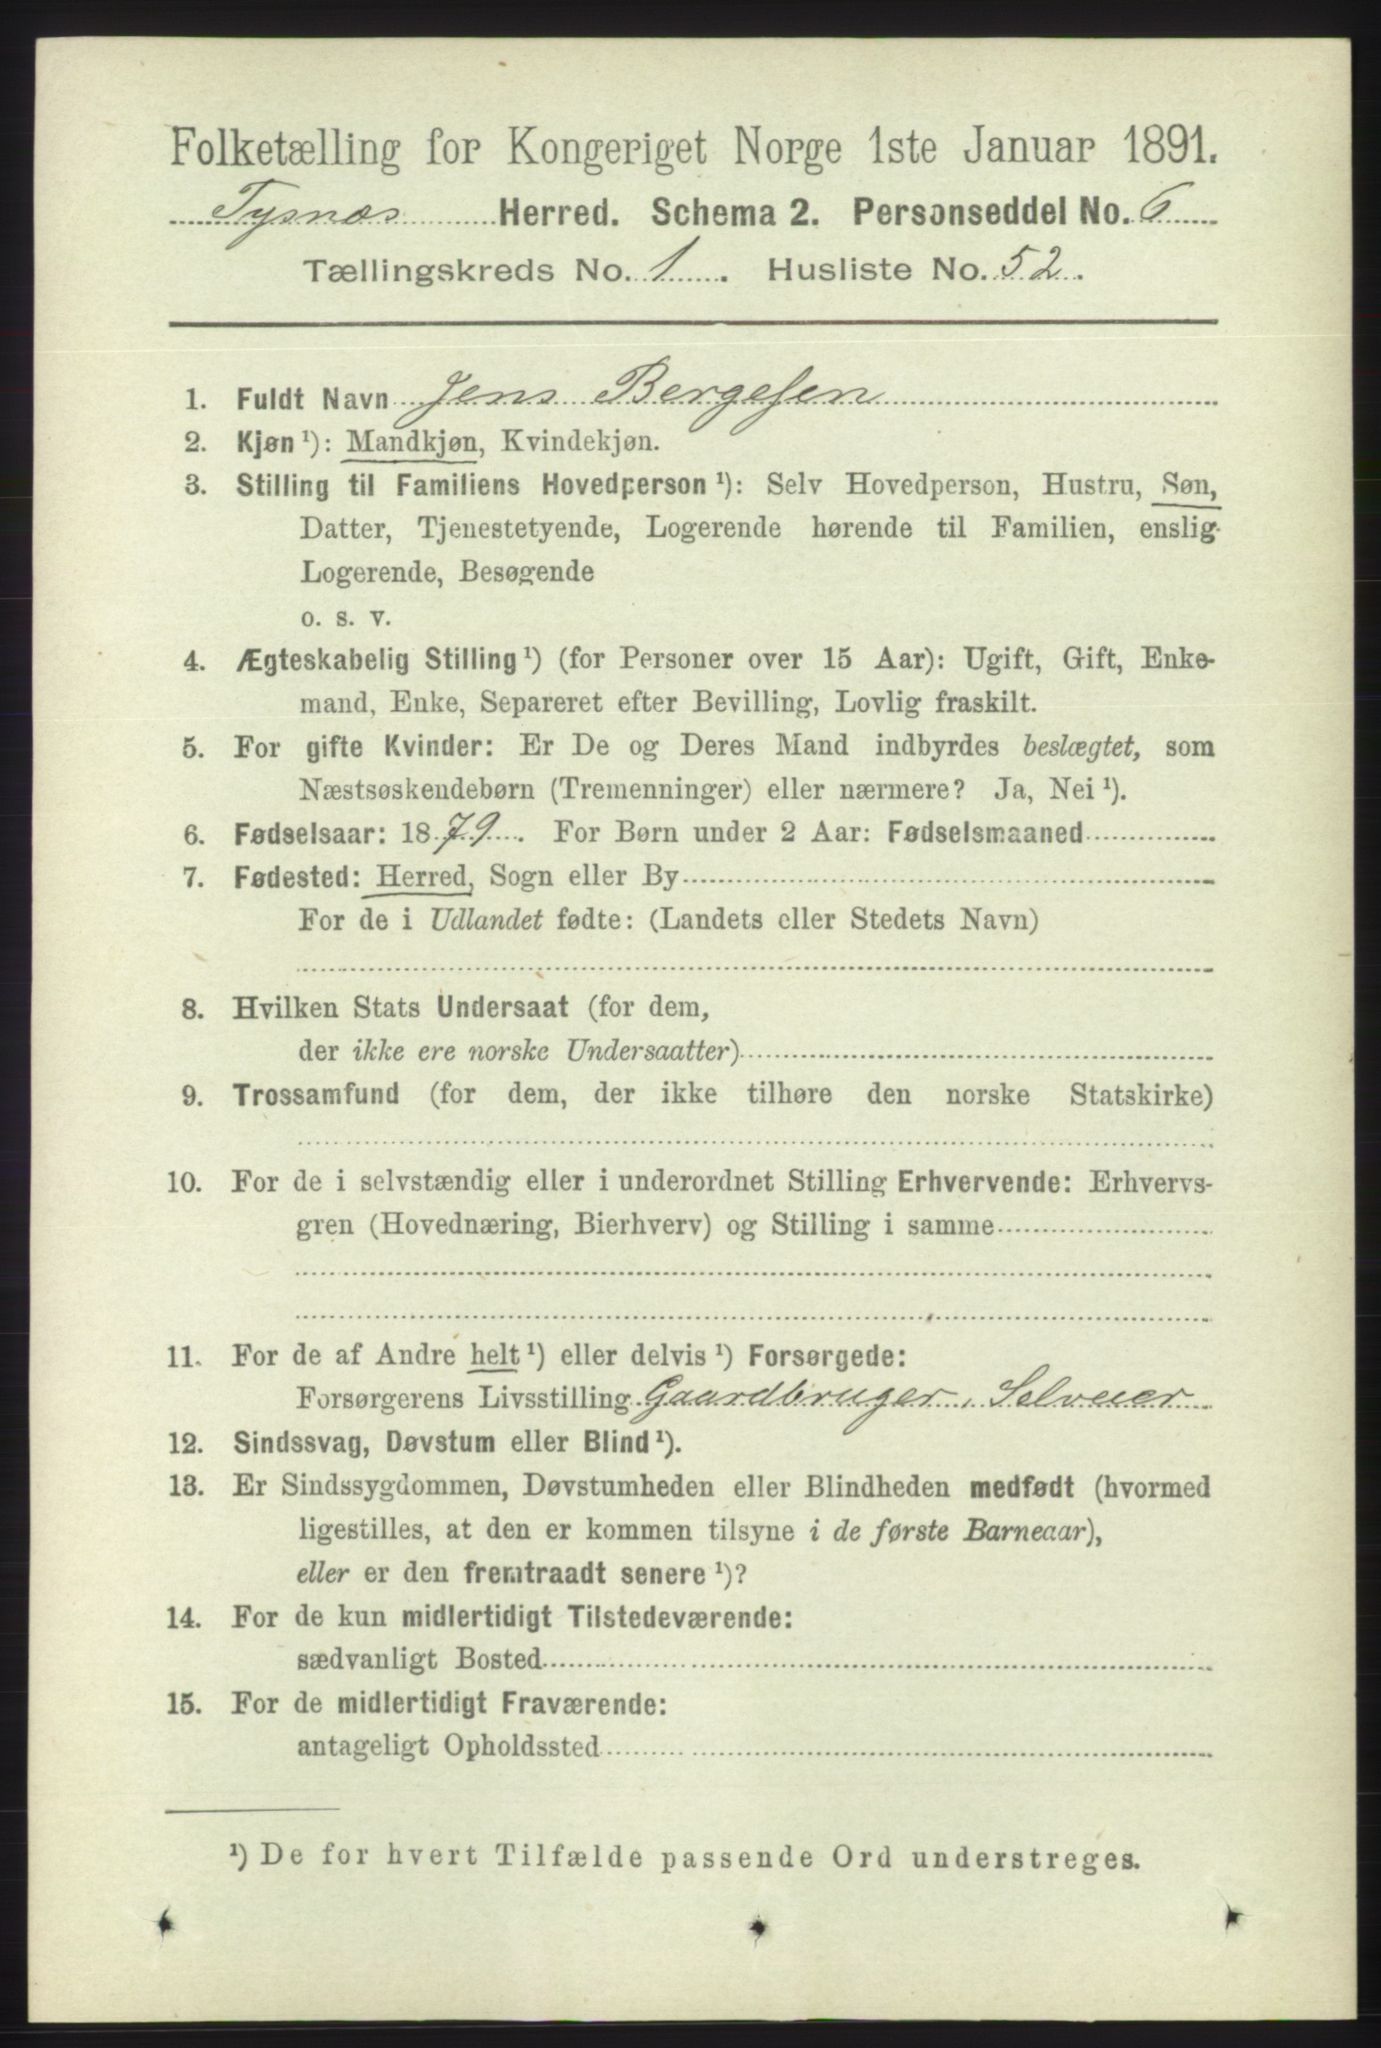 Folketælling for Kongeriget Norge 1ste Januar 1891.
Tysnæs Herred. Schema 2. Personseddel No. 6
Tællingskreds No. 1. Husliste No. 52.
1. Fuldt Navn Jens Bergesen
2. Kjøn¹): Mandkjøn, Kvindekjøn.
3. Stilling til Familiens Hovedperson¹): Selv Hovedperson, Hustru, Søn,
Datter, Tjenestetyende, Logerende hørende til Familien, enslig
Logerende, Besøgende
o. s. v.
4. Ægteskabelig Stilling¹) (for Personer over 15 Aar): Ugift, Gift, Enke-
mand, Enke, Separeret efter Bevilling, Lovlig fraskilt.
5. For gifte Kvinder: Er De og Deres Mand indbyrdes beslægtet, som
Næstsøskendebørn (Tremenninger) eller nærmere? Ja, Nei¹).
6. Fødselsaar: 1879. For Børn under 2 Aar: Fødselsmaaned
7. Fødested: Herred, Sogn eller By
For de i Udlandet fødte: (Landets eller Stedets Navn)
8. Hvilken Stats Undersaat (for dem,
der ikke ere norske Undersaatter)
9. Trossamfund (for dem, der ikke tilhøre den norske Statskirke)
10. For de i selvstændig eller i underordnet Stilling Erhvervende: Erhvervs-
gren (Hovednæring, Bierhverv) og Stilling i samme
11. For de af Andre helt¹) eller delvis¹) Forsørgede:
Forsørgerens Livsstilling Gaardbruger, Selveier
12. Sindssvag, Døvstum eller Blind¹).
13. Er Sindssygdommen, Døvstumheden eller Blindheden medfødt (hvormed
ligestilles, at den er kommen tilsyne i de første Barneaar),
eller er den fremtraadt senere¹)?
14. For de kun midlertidigt Tilstedeværende:
sædvanligt Bosted
15. For de midlertidigt Fraværende:
antageligt Opholdssted
¹) De for hvert Tilfælde passende Ord understreges.